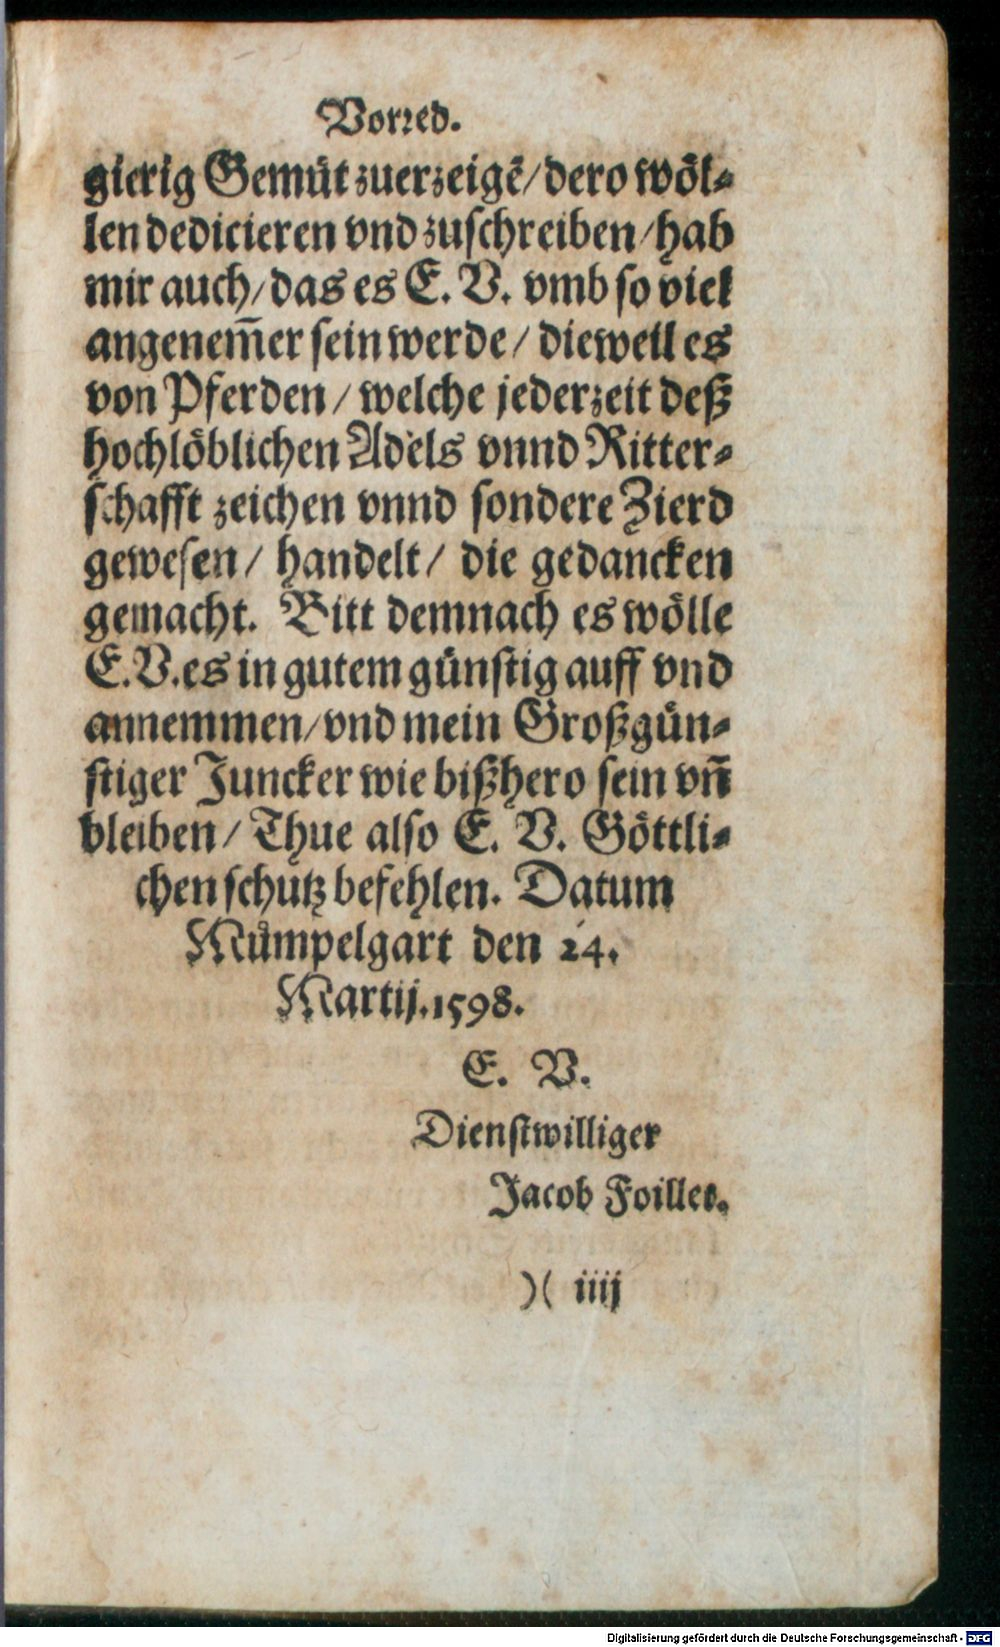 Vorred.
gierig Gemüt zuerzeigẽ/dero wöl-
len dedicieren vnd zuschreiben/hab
mir auch/das es E. V. vmb so viel
angenem̃er sein werde/ dieweil es
von Pferden/ welche jederzeit deß
hochlöblichen Adels vnnd Ritter-
schafft zeichen vnnd sondere Zierd
gewesen/ handelt/ die gedancken
gemacht. Bitt demnach es wölle
E.V.es in gutem günstig auff vnd
annemmen/vnd mein Großgün-
stiger Juncker wie bißhero sein vñ
bleiben/ Thue also E. V. Göttli-
chen schutz befehlen. Datum
Mümpelgart den 24.
Martij.1598.
E. V.
Dienstwilliger
Jacob Foillet.
)( iiij
Digitalisierung gefördert durch die Deutsche Forschungsgemeinschaft - DFG